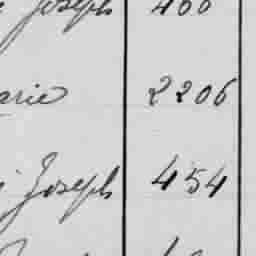 Joseph 400
arie 2206
Joseph 454